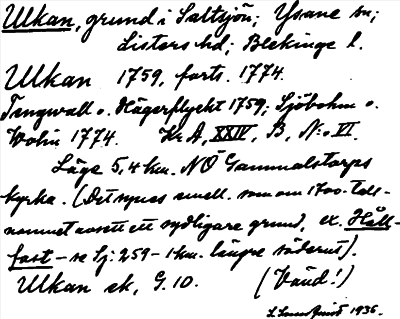 Ulkan, grund i Saltsjön; Ysane sn;
Listers hd; Blekinge l.
Ulkan 1759, forts. 1774.
Tengwall o. Hägerflycht 1759; Sjöbohm o.
Wolin 1774. Kr A, XXIV, B, N:o VI.
Läge 5,4 km. NÖ Gammalstorps
kyrka. (Det synes emell. som om 1700-tals-
namnet avsett ett sydligare grund, ex. Håll-
fast – se Sj: 259 – 1 km. längre söderut).
Ulkan ek, G. 10. (Vänd!)
1936.